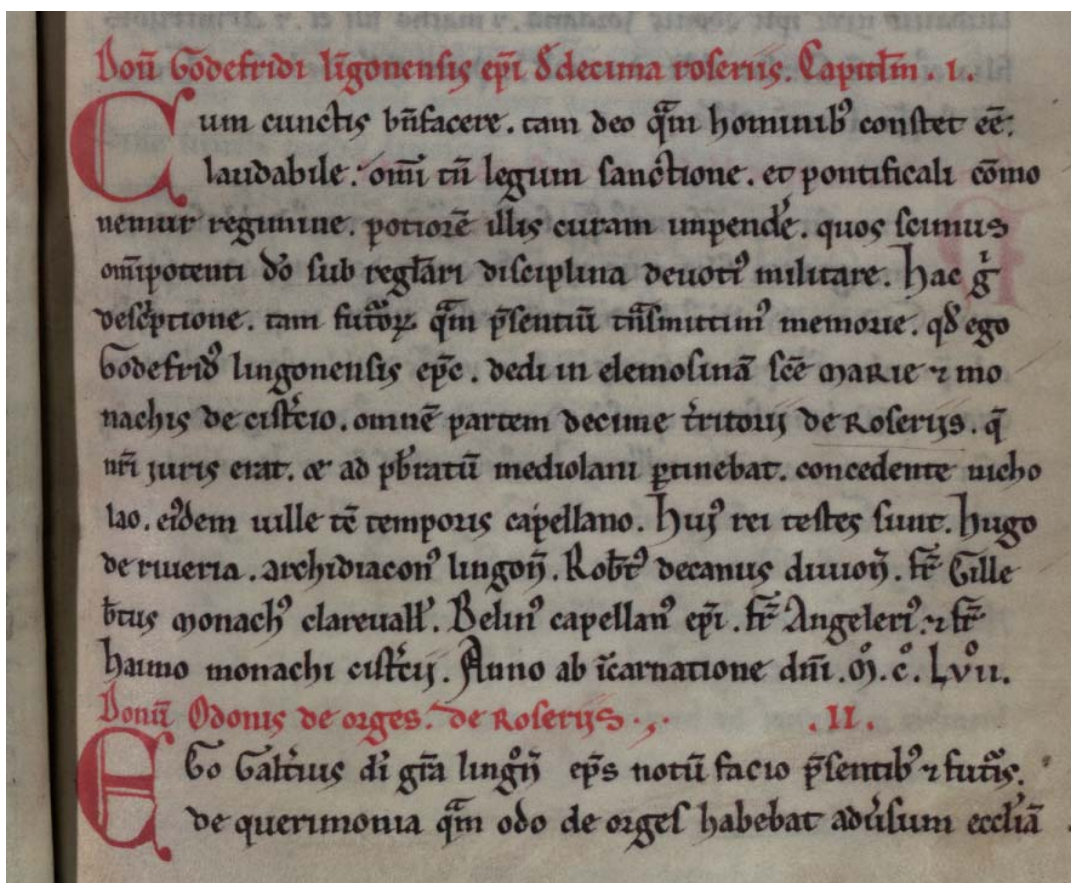 Donū Godefridi līgonensis ep̄i de decima roseriis. Capitl̄m . I.
Cum cunctis bn̄facere. tam deo qm̄ hominibꝰ constet ēē.
laudabile. om̄i tn̄ legum sanctione. et pontificali cōmo
nemur regimine. potiorē illis curam impendˀe. quos scimus
om̄ipotenti dō sub regl̄ari disciplina deuotiꝰ militare. Hac gͥ
descˀptione. tam futōꝝ qm̄ p̄sentiū tn̄smittimꝰ memorie. qđ ego
Godefridꝰ lingonensis ep̄c. dedi in elemosinā sc̄e MARIE ⁊ mo
nachis de cistˀcio. omnē partem decime tˀritorij de Roserijs. q̄
nr̄i juris erat. et ad pb̄ratū mediolani ꝑtinebat. concedente nicho
lao. eiꝰdem uille tc̄ temporis capellano. Huiꝰ rei testes sunt. Hugo
de riueria. archidiaconꝰ lingon̄. Rob̄tꝰ decanus diuion̄. fr̄ Gille
b̄tus monachꝰ clareuall̄. Belinꝰ capellanꝰ ep̄i. fr̄ Angeleriꝰ. ⁊ fr̄
haimo monachi cistˀcij. Anno ab īcarnatione dn̄i. M̊. C̊. Lvͦii.
Donū Odonis de orges. de Roserijs . II.
EGo Galtˀius di gr̄a lingon̄ ep̄s notū facio p̄sentibꝰ ⁊ futˀis.
de querimonia qm̄ odo de orges habebat aduˀsum eccl̄iā